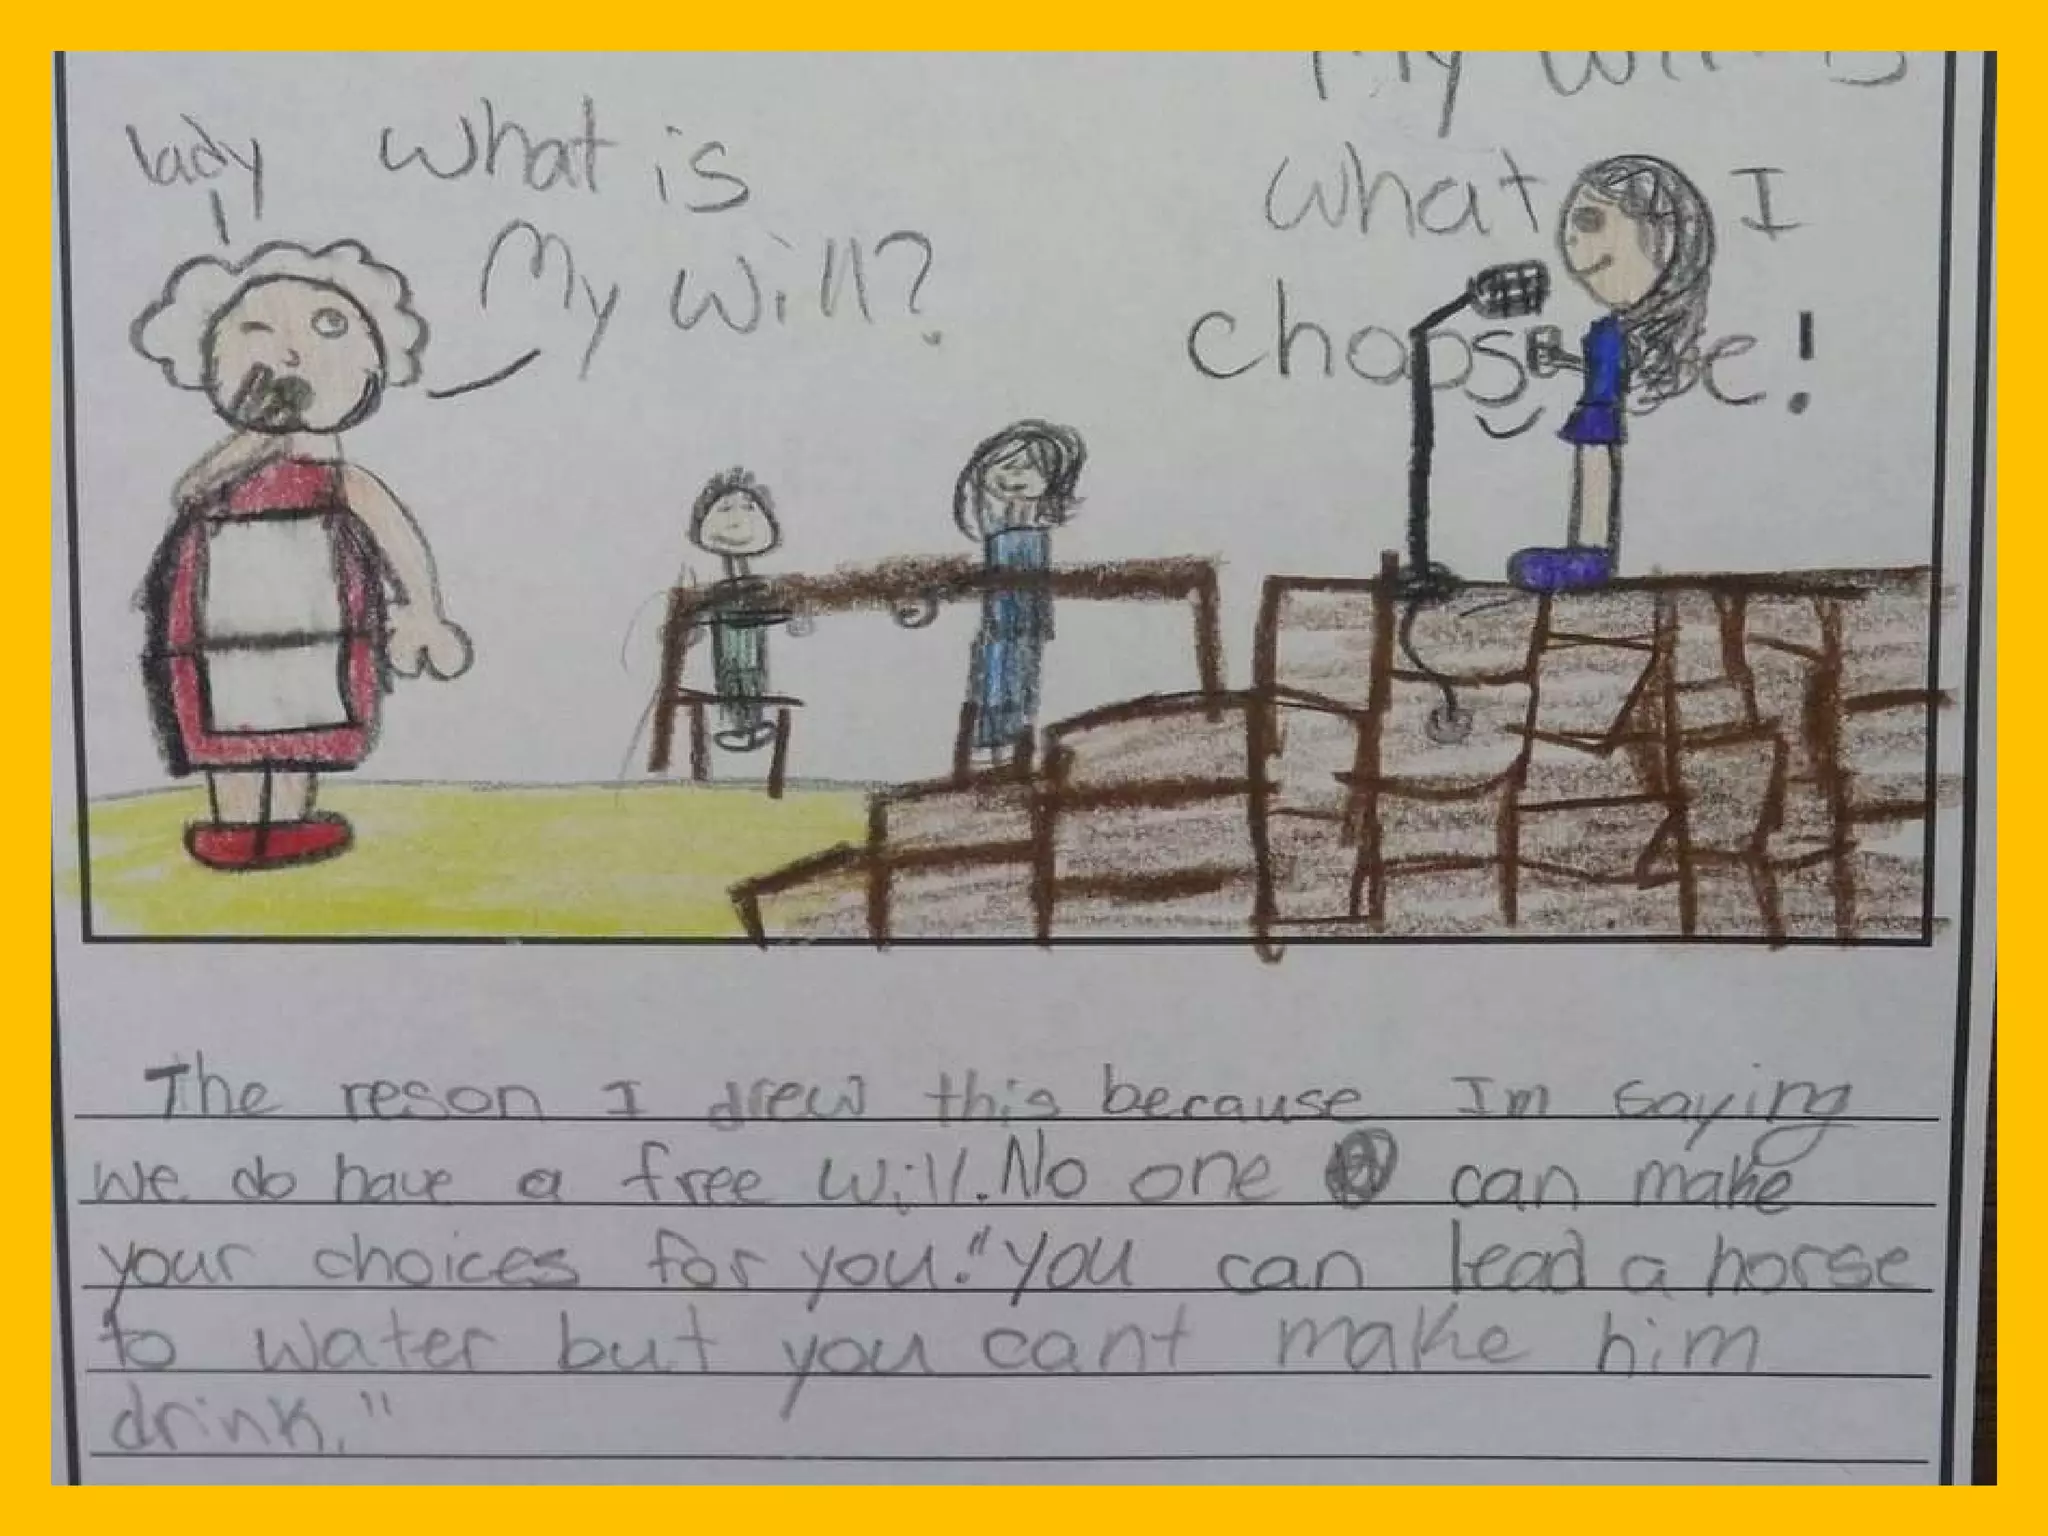 My will is
lady
what is
what I
My will?
choose!
The reson I drew this because Im saying
we do have a free will. No one can make
your choices for you. "you can lead a horse
to water but you cant make him
drink."